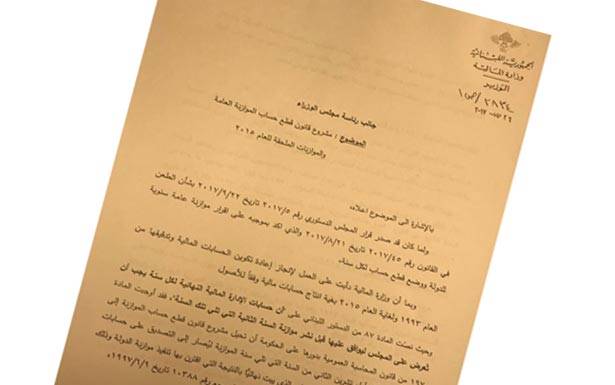 الجمهورية اللبنانية
وزارة المالية
الوزير
٢٨٣٤/ص١
جانب رئاسة مجلس الوزراء
الموضوع : مشروع قانون قطع حساب الموازنة العامة
والموازنات الملحقة للعام ٢٠١٥
بالإشارة الى الموضوع اعلاه،
ولما كان قد صدر قرار المجلس الدستوري رقم ٢٠١٧/٥ تاريخ ٢٠١٧/٩/٢٢ بشأن الطعن
في القانون رقم ٢٠١٧/٤٥ تاريخ ٢٠١٧/٨/٢١ والذي اكد بموجبه على اقرار موازنة عامة سنوية
للدولة ووضع قطع حساب لكل سنة.
وبما أن وزارة المالية دأبت على العمل لإنجاز إعادة تكوين الحسابات المالية وتدقيقها من
العام ١٩٩٣ ولغاية العام ٢٠١٥ بغية انتاج حسابات مالية وفقاً للأصول
وحيث نصت المادة ٨٧ من الدستور اللبناني على أن حسابات الإدارة المالية النهائية لكل سنة يجب أن
تعرض على المجلس ليوافق عليها قبل نشر موازنة السنة الثانية التي تلي تلك السنة، فقد أوجبت المادة
من قانون المحاسبة العمومية بدورها على الحكومة أن تحيل مشروع قانون قطع حساب الموازنة إلى
تشرين الثاني من السنة التي تلي سنة الموازنة ليُصار إلى التصديق على حسابات
الذي يبت نهائياً بالنتيجة التي اقترن بها تنفيذ موازنة الدولة وذلك
رقم ١٠٣٨٨ تاريخ ١٩٩٧/٦/١